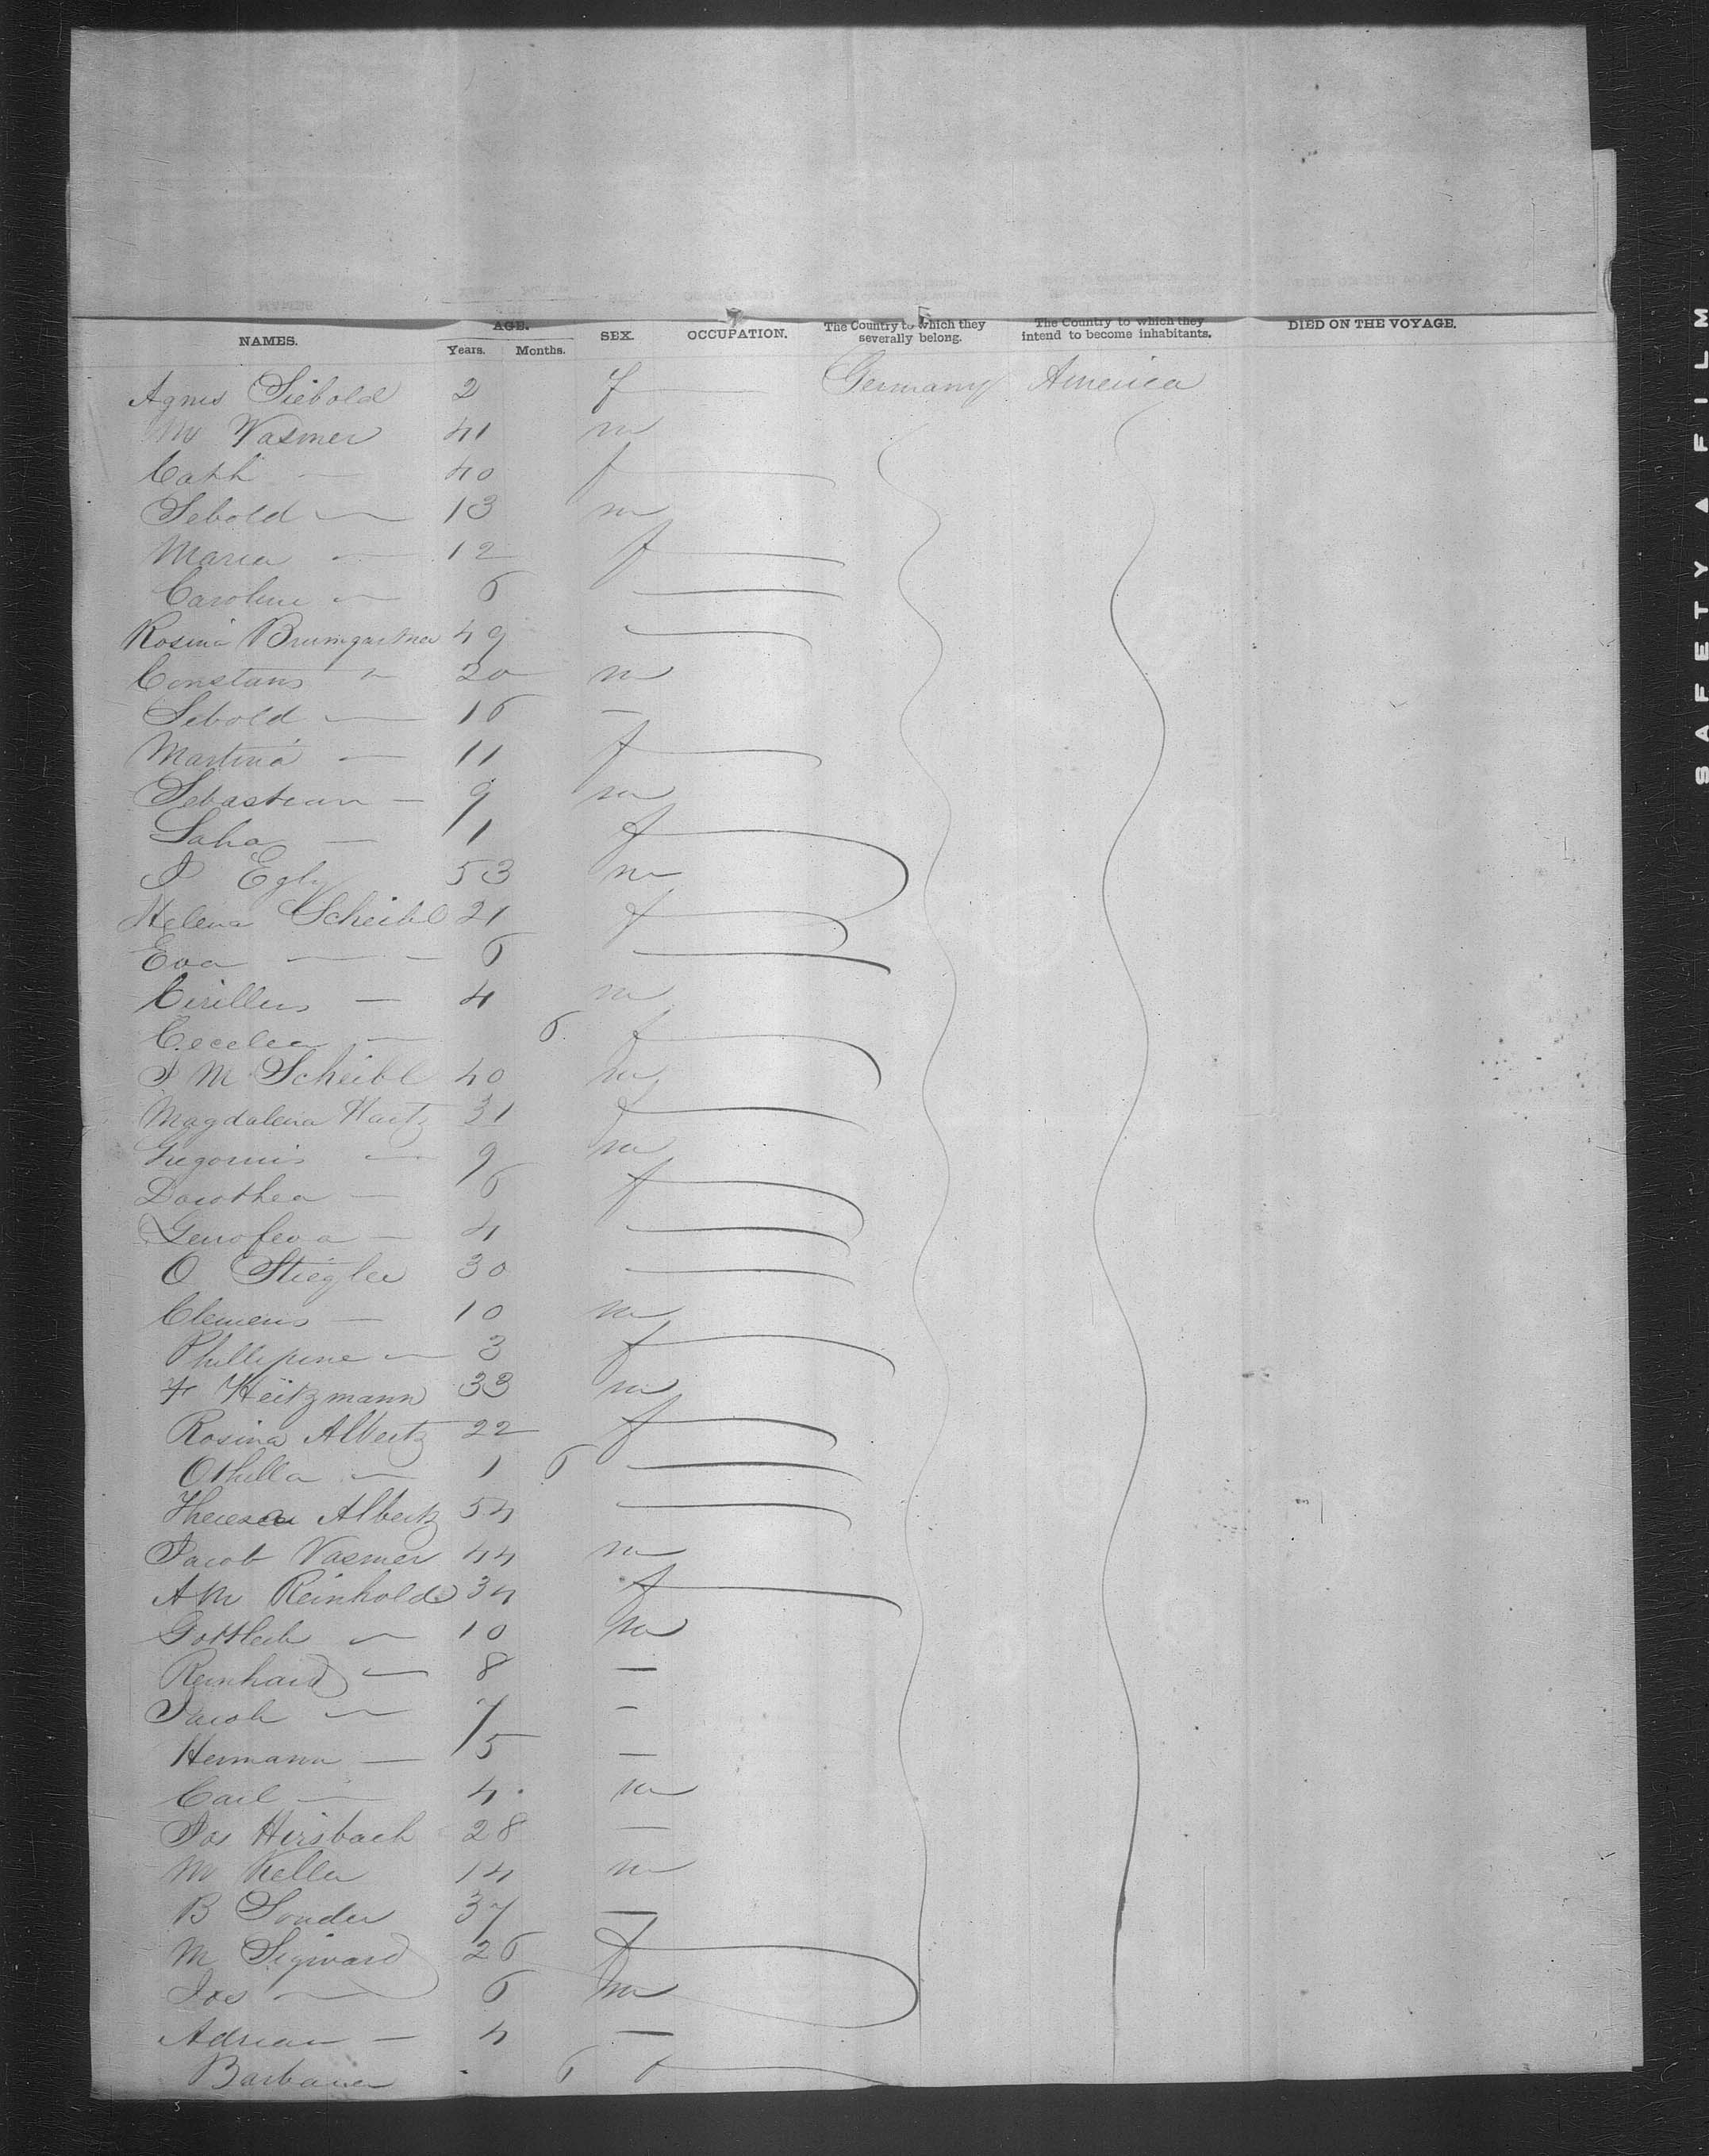 NAMES. AGE. SEX. OCCUPATION. The Country to which they severally belong. The Country to which they intend to become inhabitants. DIED ON THE VOYAGE.
Years. Months.
Agnes Siebold 2 f — Germany America
M Vasmer 41 m
Cath — 40 f —
Sebold — 13 m
Maria — 12 f —
Caroline — 6 —
Rosina Brumgartner 49 —
Constans " 20 m
Sebold — 16 —
Martina — 11 f —
Sebastian — 9 m
— 1 f —
J Egly 53 m
Helena Scheibl 21 f —
Eva — — 6 —
Cirillus — 4 m
Cecelea — 6 f —
J M Scheibl 40 m
Magdalena 31 f —
Gregorius — 9 m
Dorothea — 6 f —
Genofeva — 4 —
O Stiegler 30 —
Clemens — 10 m
Phillipine — 3 f —
F Heitzmann 33 m
Rosina Albertz 22 f —
Othilla — 1 6 —
Theresa Albertz 54 —
Jacob Vasmer 44 m
AM Reinhold 34 f —
Gottlieb — 10 m
Reinhard — 8 —
Jacob — 7 —
Hermann — 5 —
Carl — 4 m
Jos Hirsbach 28 —
M Keller 14 m
B Souder 37 —
M Sigward 26 f —
Jos — 6 m
Adrian — 4 —
Barbara 6 f —
SAFETY ▲ FILM